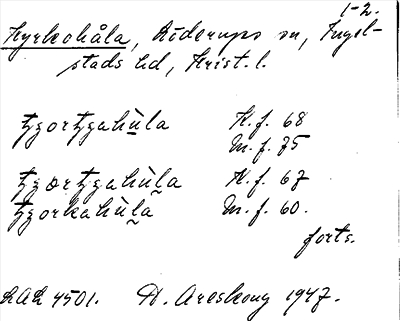 1-2.
Kyrkohåla, Röderups sn, Ingel-
stads hd, Krist. l.
tʒortʒahùla K. f. 68
M. f. 75
tʒɶrtʒahùla K. f. 67
tʒorkahùla M. f. 60.
forts.
LAL 4501. A. Areskoug 1947.